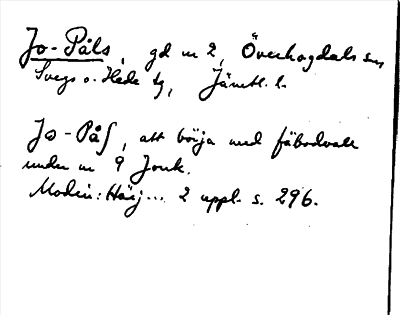 Jo-Påls, gd nr 2, Överhogdals sn,
Svegs o. Hede tg, Jämtl. l.
Jo-Påſ, att börja med fäbodvall
under nr 9 Jonk.
Modin: Härj... 2 uppl. s. 296.